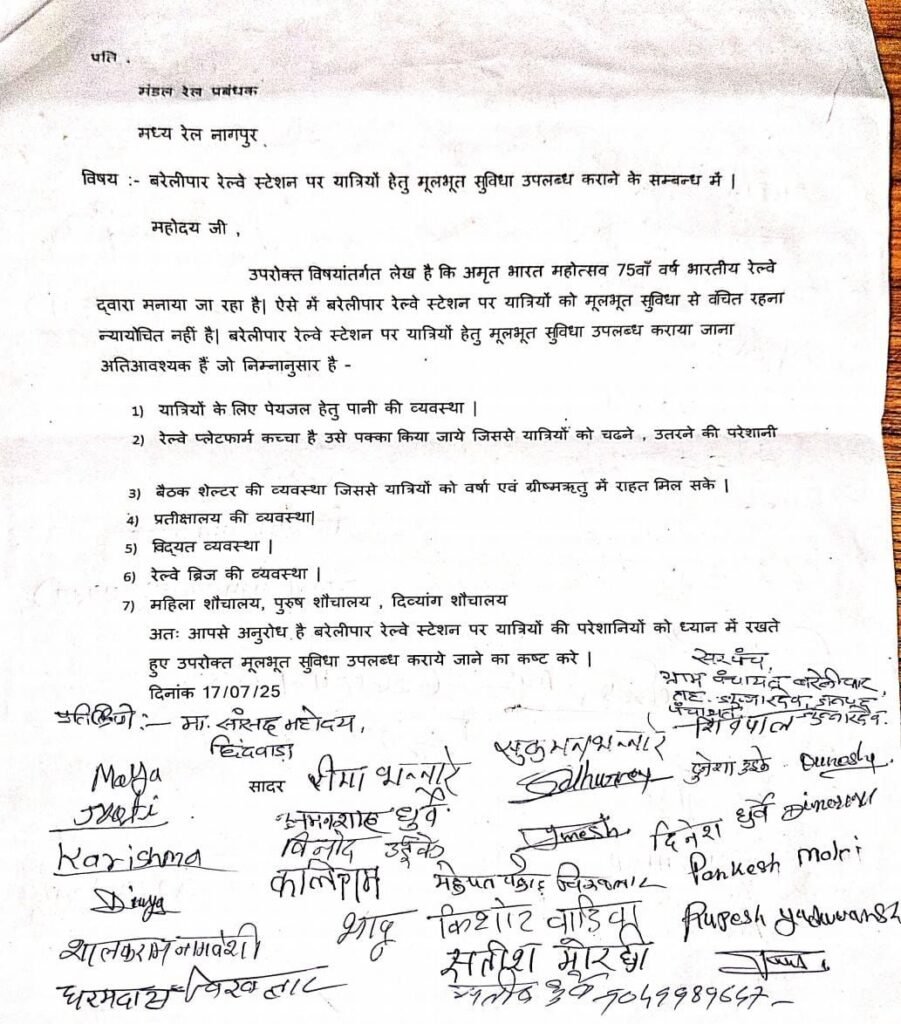 प्रति ,
मंडल रेल प्रबंधक
मध्य रेल नागपुर
विषय :- बरेलीपार रेल्वे स्टेशन पर यात्रियों हेतु मूलभूत सुविधा उपलब्ध कराने के सम्बन्ध में |
महोदय जी ,
उपरोक्त विषयांतर्गत लेख है कि अमृत भारत महोत्सव 75वाँ वर्ष भारतीय रेल्वे
द्वारा मनाया जा रहा है| ऐसे में बरेलीपार रेल्वे स्टेशन पर यात्रियों को मूलभूत सुविधा से वंचित रहना
न्यायोचित नहीं है| बरेलीपार रेल्वे स्टेशन पर यात्रियों हेतु मूलभूत सुविधा उपलब्ध कराया जाना
अतिआवश्यक हैं जो निम्नानुसार है -
1) यात्रियों के लिए पेयजल हेतु पानी की व्यवस्था |
2) रेल्वे प्लेटफार्म कच्चा है उसे पक्का किया जाये जिससे यात्रियों को चढने , उतरने की परेशानी
3) बैठक शेल्टर की व्यवस्था जिससे यात्रियों को वर्षा एवं ग्रीष्मऋतु में राहत मिल सके |
4) प्रतीक्षालय की व्यवस्था|
5) विद्यत व्यवस्था |
6) रेल्वे ब्रिज की व्यवस्था |
7) महिला शौचालय, पुरुष शौचालय , दिव्यांग शौचालय
अतः आपसे अनुरोध है बरेलीपार रेल्वे स्टेशन पर यात्रियों की परेशानियों को ध्यान में रखते
हुए उपरोक्त मूलभूत सुविधा उपलब्ध कराये जाने का कष्ट करे |
दिनांक 17/07/25
सरपंच,
ग्राम पंचायत बरेलीपार,
प्रतिलिपि :- मा. सांसद महोदय,
छिंदवाड़ा
शिवपाल
सादर
सुकमन भन्नारे
रीमा भन्नारे
Maya
Karishma
Divya
विनोद उईके
कालिराम
Umesh
दिनेश धुर्वे
Pankesh
भादू
किशोर वाडिवा
Rupesh yaduwanshi
शालकराम नागवंशी
सतीश
धरमदास